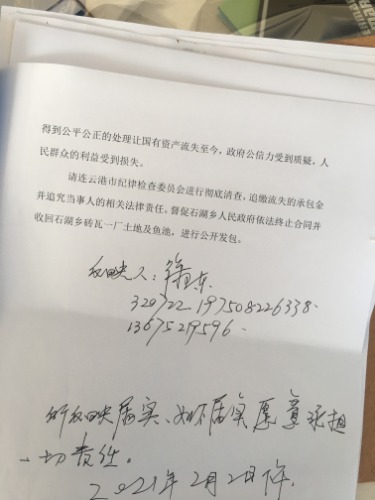 得到公平公正的处理让国有资产流失至今，政府公信力受到质疑，人
民群众的利益受到损失。
请连云港市纪律检查委员会进行彻底清查，追缴流失的承包金
并追究当事人的相关法律责任。督促石湖乡人民政府依法终止合同并
收回石湖乡砖瓦一厂土地及鱼池，进行公开发包。
反映人：东
320722197508226338.
13675219596.
所反映属实、如不属实愿意承担
一切责任。
2021年2月2日